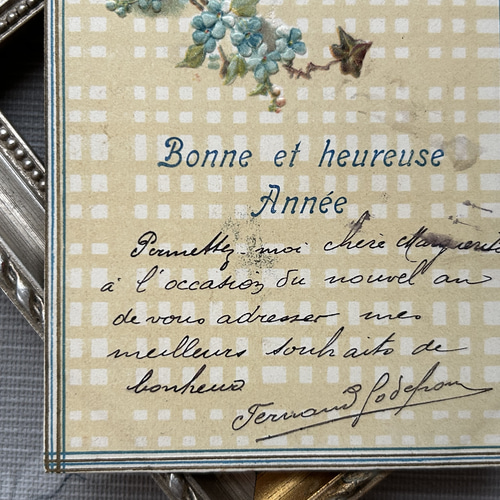 Bonne et heureuse
Année
Permettez moi chère Marguerite
à l'occasion du nouvel an
de vous adresser mes
meilleurs souhaits de
bonheur
Fernand Godefroy